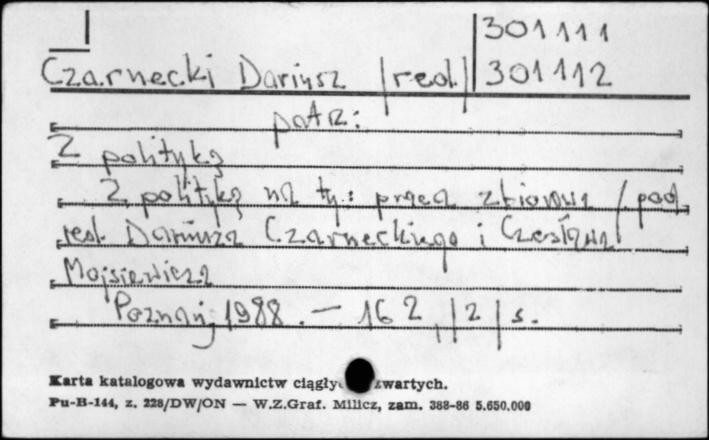 301111
Czarnecki Dariusz /red./ 301112
patrz:
Z polityką
Z polityką na ty : praca zbiorowa / pod
red. Dariusza Czarneckiego i Czesława
Mojsiewicza
Poznań, 1988. - 162, /2/ s.
Karta katalogowa wydawnictw ciągły zwartych.
Pu-B-144, z. 228/DW/ON — W.Z.Graf. Milicz, zam. 388-86 5.650.000